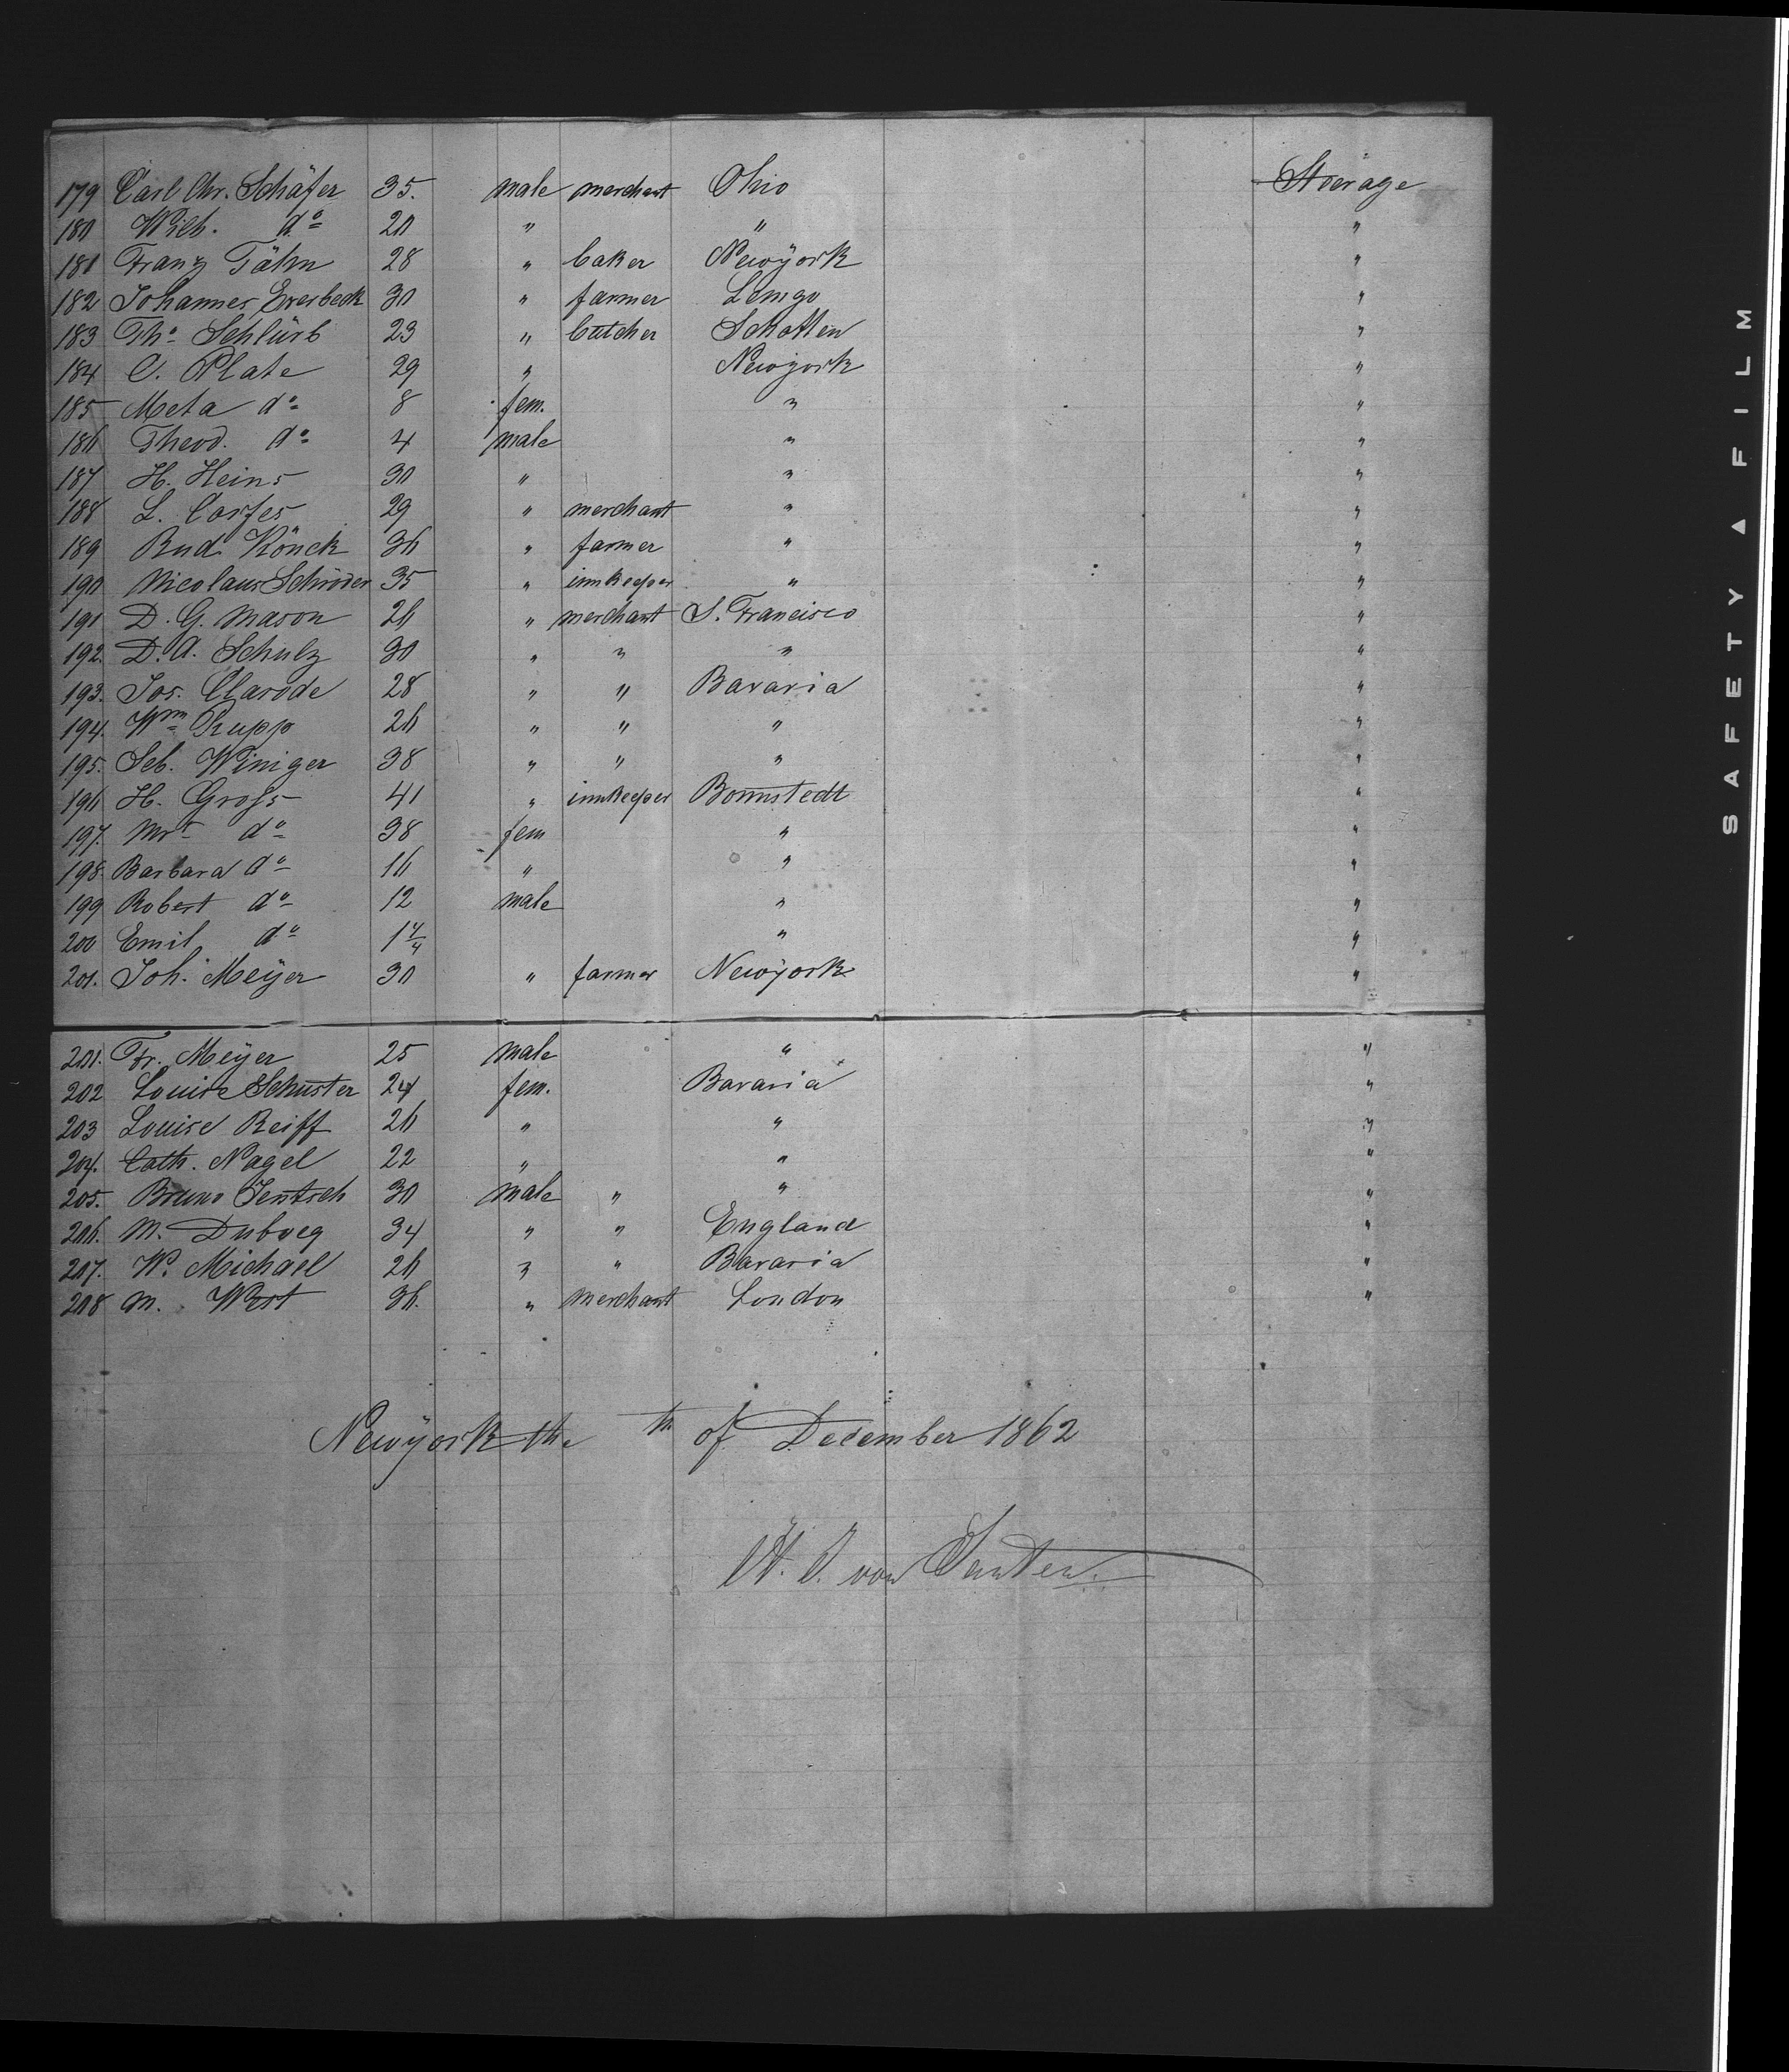 179 Carl Chr. Schäfer 35. male merchant Ohio Steerage
180 Wilh. do 20 " " "
181 Franz Tähn 28 " baker Newÿork "
182 Johannes Eversbeck 30 " farmer Lemgo "
183 Tho Schlürb 23 " butcher Schotten "
184 C. Plate 29 " Newÿork "
185 Meta do 8 fem. " "
186 Theod. do 4 male " "
187 H. Heins 30 " " "
188 L. Carfes 29 " merchant " "
189 Rud. Könck 36 " farmer " "
190 Nicolaus Schröder 35 " innkeeper " "
191 D. G. Mason 26 " merchant S. Francisco "
192. D. A. Schulz 30 " " " "
193. Jos. Clarode 28 " " Bavaria "
194. Wm Rupp 26 " " " "
195. Seb. Winiger 38 " " " "
196 H. Groß 41 " innkeeper Bornstedt "
197. Mrs do 38 fem " "
198. Barbara do 16 " " "
199 Robert do 12 male " "
200 Emil do 1 " "
201. Joh. Meÿer 30 " farmer Newÿork "
201. Fr. Meÿer 25 male " "
202 Louise Schuster 24 fem. Bavaria "
203 Louise Reiff 26 " " "
204. Cath. Nagel 22 " " "
205. Bruno Jentsch 30 male " " "
206. M. Duboeg 34 " " England "
207. W. Michael 26 " " Bavaria "
208 M. West 36. " merchant London "
Newÿork the th of December 1862
H. J. von Santen.
SAFETY ▲ FILM